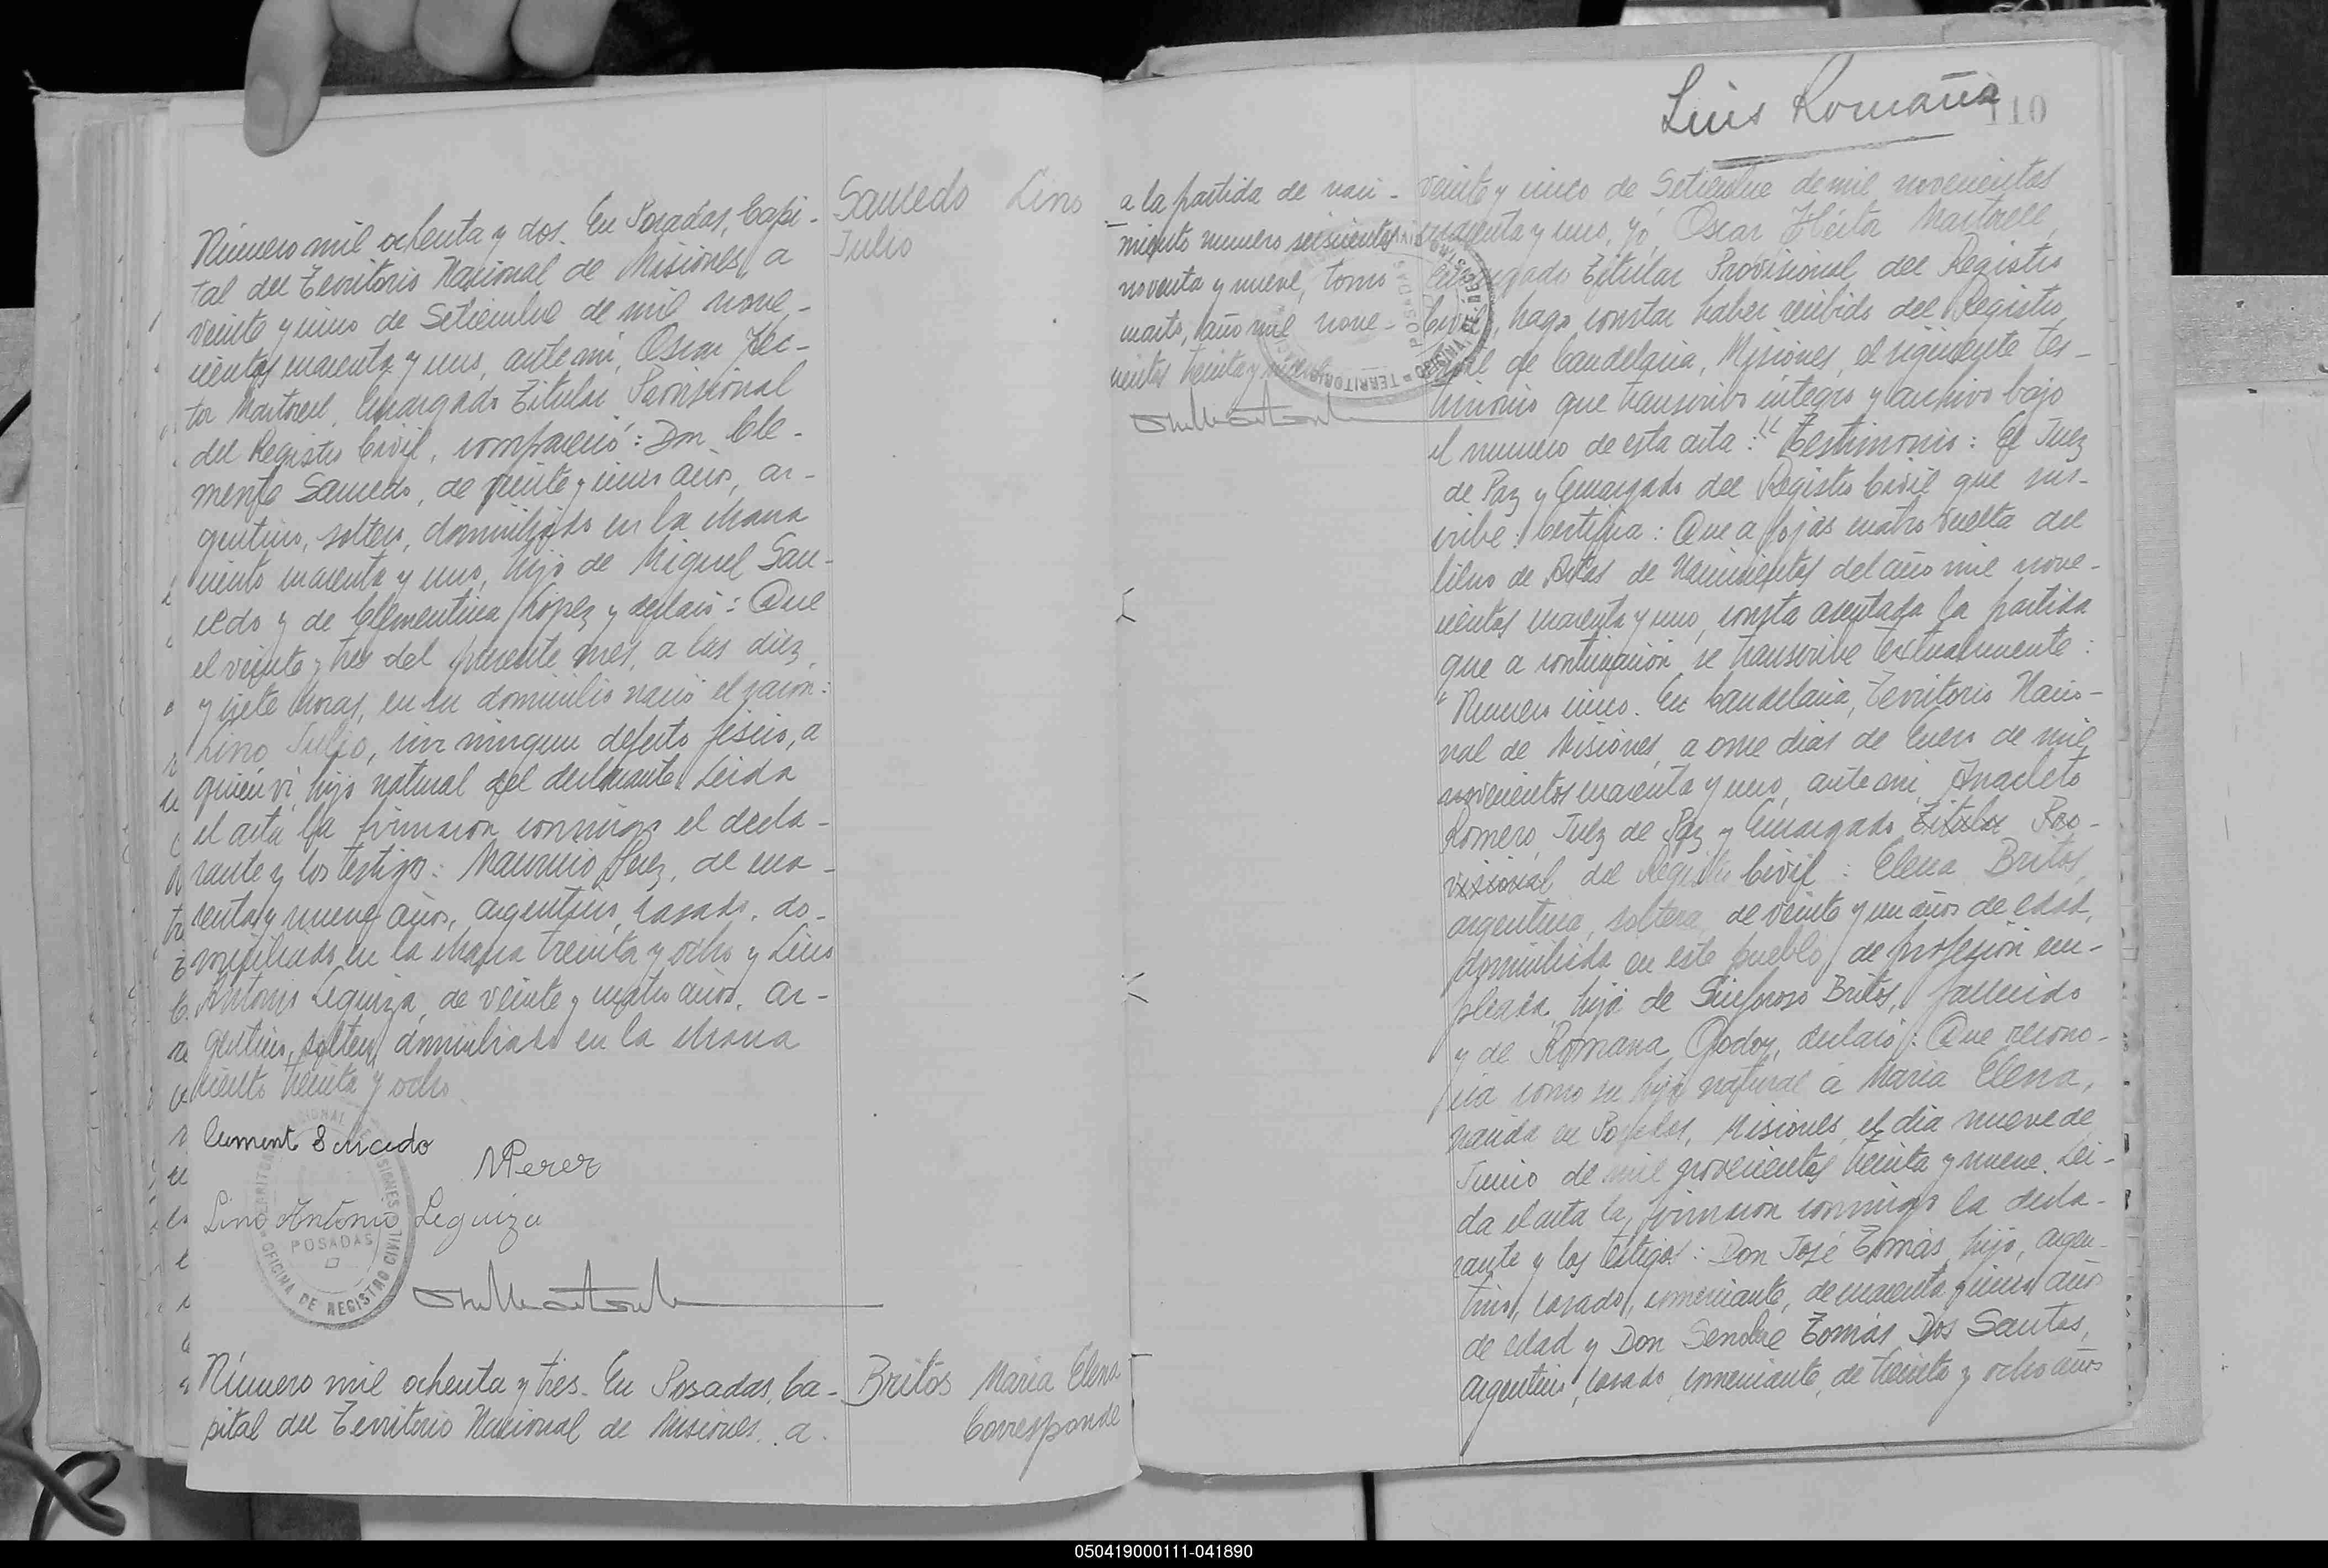 Saucedo Lino
Julio
Número mil ochenta y dos. En Posadas, Capi-
tal del Territorio Nacional de Misiones, a
veinte y cinco de Setiembre de mil nove-
cientos cuarenta y uno, ante mi, Oscar Héc-
tor Martorell, Encargado Titular Provisional
del Registro Civil, compareció: Don Cle-
mente Saucedo, de veinte y cinco años, ar-
gentino, soltero, domiciliado en la chacra
ciento cuarenta y uno, hijo de Miguel Sau-
cedo y de Clementina López y declaró: Que
el veinte y tres del presente mes, a las diez
y siete horas, en su domicilio nació el varón:
Lino Julio, sin ningun defecto físico, a
quién ví, hijo natural del declarante. Leida
el acta la firmaron conmigo el decla-
rante y los testigos: Mauricio Perez, de cua-
renta y nueve años, argentino, casado, do-
miciliado en la chacra treinta y ocho y Lino
Antonio Leguiza, de veinte y cuatro años, ar-
gentino, soltero, domiciliado en la chacra
ciento treinta y ocho
Clement Saucedo
MPerez
Lino Antonio Leguiza
POSADAS
OFICINA DE REGISTRO CIVIL
Número mil ochenta y tres. En Posadas, Ca-
pital del Territorio Nacional de Misiones, a
Britos María Elena
Corresponde
a la partida de naci-
miento numero seiscientos
noventa y nueve, tomo
cuarto, año mil nove-
cientos treinta y nueve
Luis Romaña
110
veinte y cinco de Setiembre de mil novecientos
cuarenta y uno, yó, Oscar Héctor Martorell,
Encargado Titular Provisional del Registro
Civil, hago constar haber recibido del Registro
Civil de Candelaria, Misiones, el siguiente tes-
timonio que transcribo integro y archivo bajo
el numero de esta acta: "Testimonio: El Juez
de Paz y Encargado del Registro Civil que sus-
cribe: Certifica: Que a fojas cuatro vuelta del
libro de Actas de Nacimientos del año mil nove-
cientos cuarenta y uno, consta asentada la partida
que a continuación se transcribe textualmente:
"Numero cinco. En Candelaria, Territorio Nacio-
nal de Misiones, a once dias de Enero de mil
novecientos cuarenta y uno, ante mi, Anacleto
Romero, Juez de Paz y Encargado Titular Pro-
visional del Registro Civil: Elena Britos,
argentina, soltera, de veinte y un años de edad,
domiciliada en este pueblo, de profesión em-
pleada, hija de Sinforoso Britos, fallecido
y de Romana Godoy, declaró: Que recono-
cía como su hija natural a María Elena,
nacida en Posadas, Misiones, el día nueve de
Junio de mil novecientos treinta y nueve. Lei-
da el acta la firmaron conmigo la decla-
rante y los testigos: Don José Tomás, hijo, argen-
tino, casado, comerciante, de cuarenta y cinco años
de edad y Don Tomás Dos Santos,
argentino, casado, comerciante, de treinta y ocho años
050419000111-041890